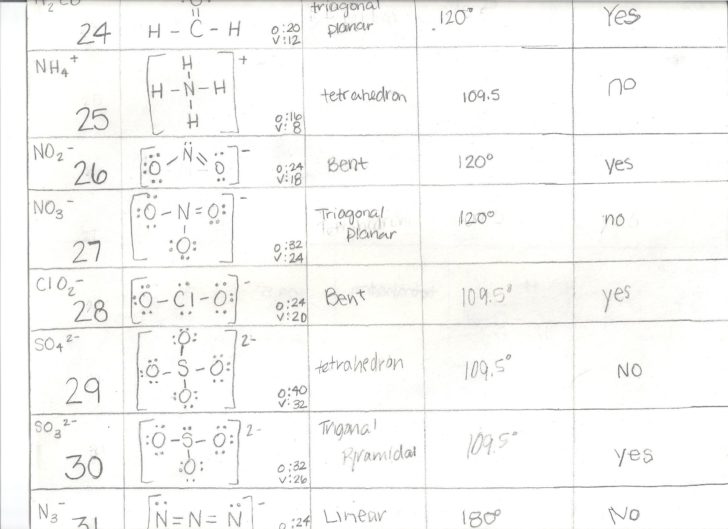 H2CO
24
H - C - H
O
o:20
v:12
triagonal
planar
120°
Yes
NH4+
25
[H - N - H]+
H
H
o:16
v:8
tetrahedron
109.5
no
NO2-
26
[O - N = O]-
o:24
v:18
Bent
120°
yes
NO3-
27
[O - N = O]-
O
o:32
v:24
Triagonal
planar
120°
no
ClO2-
28
[O - Cl - O]-
o:24
v:20
Bent
109.5°
yes
SO4 2-
29
O
[O - S - O] 2-
O
o:40
v:32
tetrahedron
109.5°
NO
SO3 2-
30
[O - S - O] 2-
O
o:32
v:26
Trigonal
Pyramidal
109.5°
yes
N3-
31
[N = N = N]-
o:24
Linear
180°
No